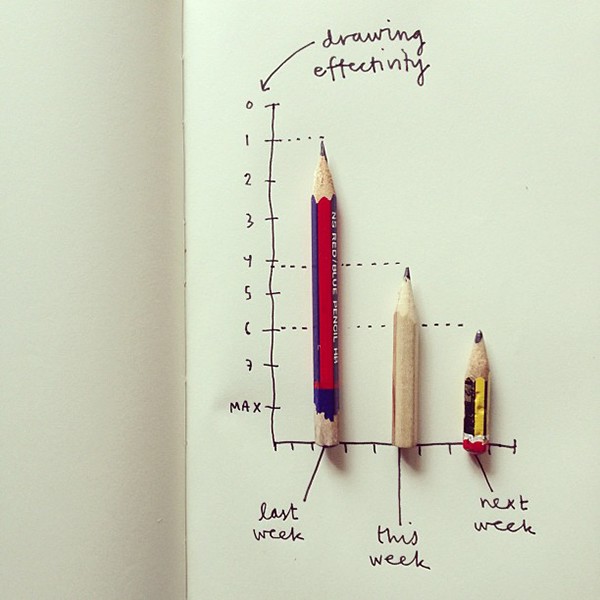 drawing
effectivity
0
1
2
3
4
5
6
7
MAX
NS RED/BLUE PENCIL HB
last
week
this
week
next
week